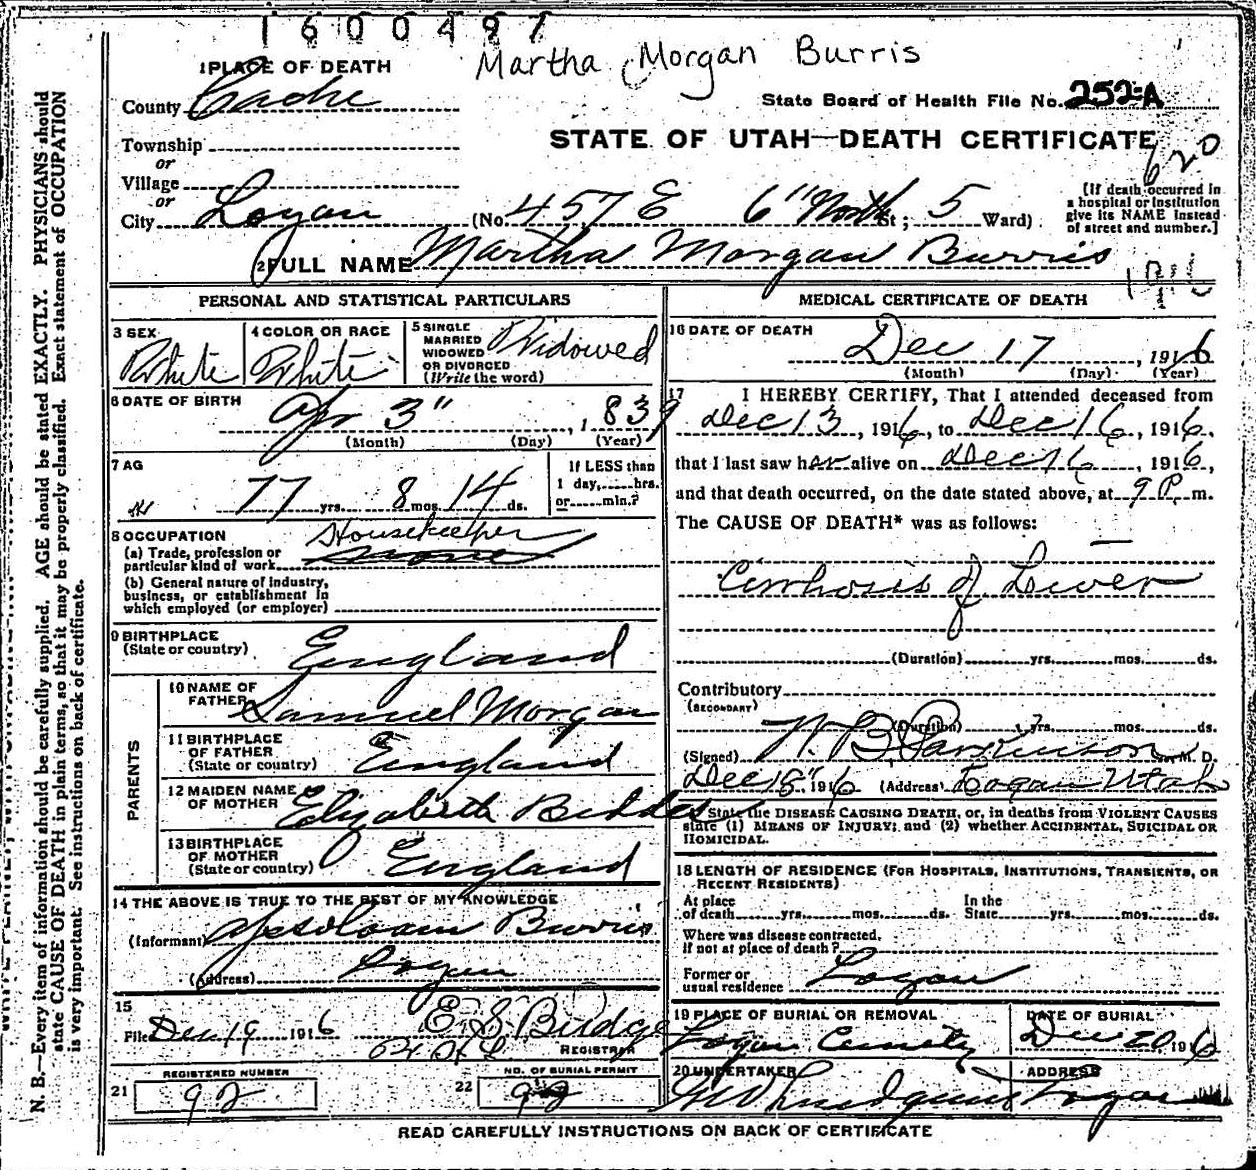 1600497
Martha Morgan Burris
1 PLACE OF DEATH
County Cache
State Board of Health File No. 252-A
Township
or
Village
or
City Logan (No. 457 E 6" North St; 5 Ward)
STATE OF UTAH—DEATH CERTIFICATE
620
[If death occurred in
a hospital or institution
give its NAME instead
of street and number.]
2 FULL NAME Martha Morgan Burris
1916
PERSONAL AND STATISTICAL PARTICULARS
3 SEX White
4 COLOR OR RACE White
5 SINGLE
MARRIED
WIDOWED
OR DIVORCED
(Write the word) Widowed
6 DATE OF BIRTH Apr 3" , 1839
(Month) (Day) (Year)
7 AG 77 yrs. 8 mos. 14 ds.
If LESS than
1 day,......hrs.
or......min.?
8 OCCUPATION Housekeeper
(a) Trade, profession or
particular kind of work
(b) General nature of industry,
business, or establishment in
which employed (or employer)
9 BIRTHPLACE
(State or country) England
PARENTS
10 NAME OF
FATHER Samuel Morgan
11 BIRTHPLACE
OF FATHER
(State or country) England
12 MAIDEN NAME
OF MOTHER Elizabeth Beddes
13 BIRTHPLACE
OF MOTHER
(State or country) England
14 THE ABOVE IS TRUE TO THE BEST OF MY KNOWLEDGE
(Informant) Burris
(Address) Logan
15
Filed Dec 19 1916 E S Budge
REGISTRAR
REGISTERED NUMBER
21 92
NO. OF BURIAL PERMIT
22 92
MEDICAL CERTIFICATE OF DEATH
16 DATE OF DEATH
Dec 17 , 1916
(Month) (Day) (Year)
17 I HEREBY CERTIFY, That I attended deceased from
Dec 13, 1916, to Dec 16, 1916,
that I last saw her alive on Dec 16, 1916,
and that death occurred, on the date stated above, at 9 P. m.
The CAUSE OF DEATH* was as follows:
Cirrhosis of Liver
(Duration) yrs. mos. ds.
Contributory
(SECONDARY)
(Duration) yrs. mos. ds.
(Signed) W. B. Parkinson M. D.
Dec 18" 1916 (Address) Logan Utah
State the DISEASE CAUSING DEATH, or, in deaths from VIOLENT CAUSES
state (1) MEANS OF INJURY; and (2) whether ACCIDENTAL, SUICIDAL OR
HOMICIDAL.
18 LENGTH OF RESIDENCE (FOR HOSPITALS, INSTITUTIONS, TRANSIENTS, OR
RECENT RESIDENTS)
At place
of death yrs. mos. ds.
In the
State yrs. mos. ds.
Where was disease contracted,
if not at place of death?
Former or
usual residence Logan
19 PLACE OF BURIAL OR REMOVAL
Logan Cemetery
DATE OF BURIAL
Dec 20, 1916
20 UNDERTAKER
ADDRESS
Logan
READ CAREFULLY INSTRUCTIONS ON BACK OF CERTIFICATE
N. B.—Every item of information should be carefully supplied. AGE should be stated EXACTLY. PHYSICIANS should
state CAUSE OF DEATH in plain terms, so that it may be properly classified. Exact statement of OCCUPATION
is very important. See instructions on back of certificate.